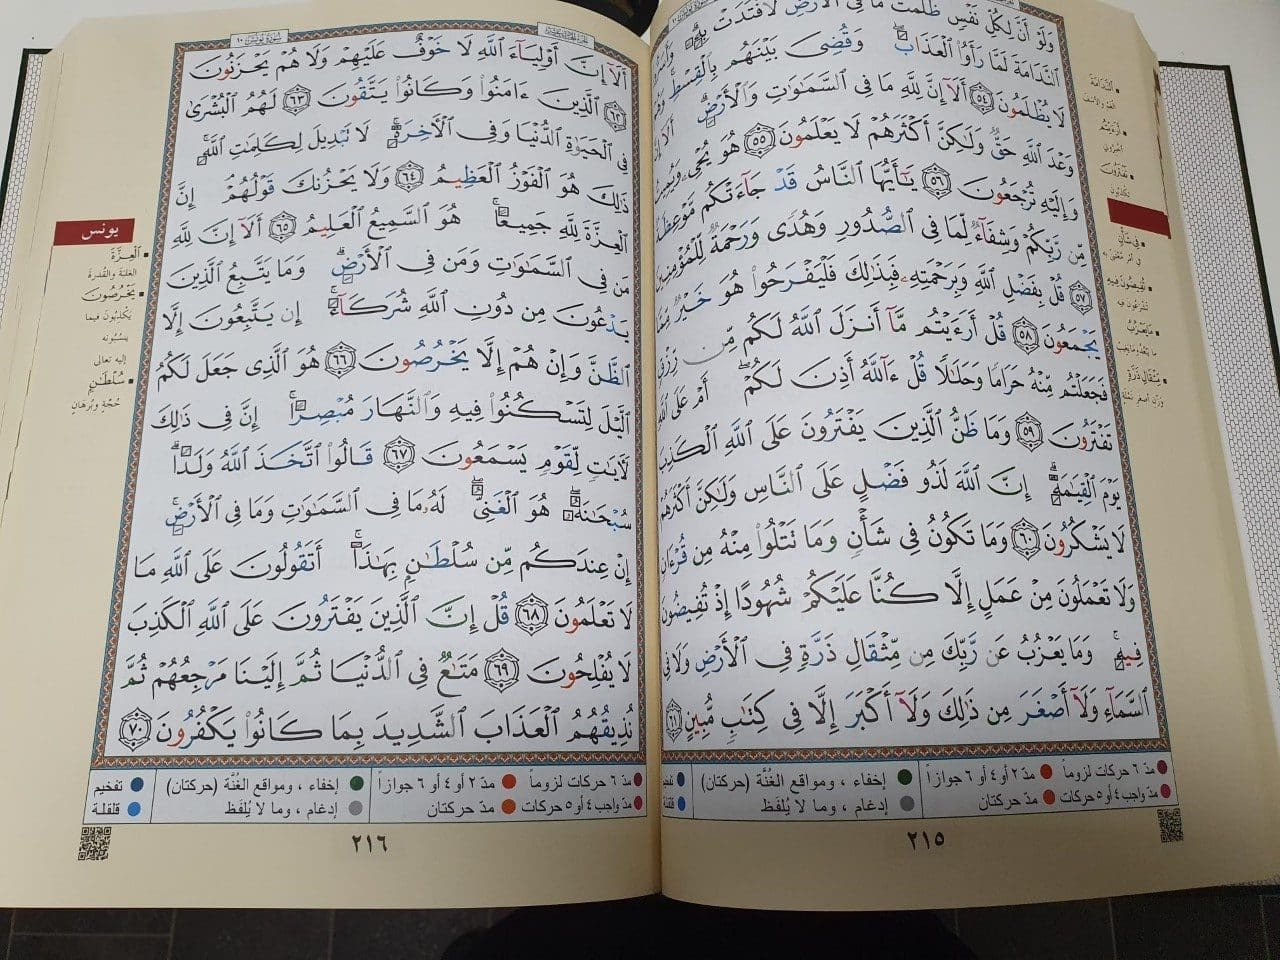 وَلَوْ أَنَّ لِكُلِّ نَفْسٍ ظَلَمَتْ مَا فِى الْأَرْضِ لَافْتَدَتْ بِهِۦ
النَّدَامَةَ لَمَّا رَأَوُا الْعَذَابَ وَقُضِىَ بَيْنَهُم بِالْقِسْطِ
لَا يُظْلَمُونَ ٥٤ أَلَآ إِنَّ لِلَّهِ مَا فِى السَّمَـٰوَٰتِ وَالْأَرْضِ أَلَآ إِنَّ
وَعْدَ اللَّهِ حَقٌّ وَلَـٰكِنَّ أَكْثَرَهُمْ لَا يَعْلَمُونَ ٥٥ هُوَ يُحْىِۦ وَيُمِيتُ
وَإِلَيْهِ تُرْجَعُونَ ٥٦ يَـٰٓأَيُّهَا النَّاسُ قَدْ جَآءَتْكُم مَّوْعِظَةٌ
مِّن رَّبِّكُمْ وَشِفَآءٌ لِّمَا فِى الصُّدُورِ وَهُدًى وَرَحْمَةٌ لِّلْمُؤْمِنِينَ
٥٧ قُلْ بِفَضْلِ اللَّهِ وَبِرَحْمَتِهِۦ فَبِذَٰلِكَ فَلْيَفْرَحُوا۟ هُوَ خَيْرٌ مِّمَّا
يَجْمَعُونَ ٥٨ قُلْ أَرَءَيْتُم مَّآ أَنزَلَ اللَّهُ لَكُم مِّن رِّزْقٍ
فَجَعَلْتُم مِّنْهُ حَرَامًا وَحَلَـٰلًا قُلْ ءَآللَّهُ أَذِنَ لَكُمْ أَمْ عَلَى اللَّهِ
تَفْتَرُونَ ٥٩ وَمَا ظَنُّ الَّذِينَ يَفْتَرُونَ عَلَى اللَّهِ الْكَذِبَ
يَوْمَ الْقِيَـٰمَةِ إِنَّ اللَّهَ لَذُو فَضْلٍ عَلَى النَّاسِ وَلَـٰكِنَّ أَكْثَرَهُمْ
لَا يَشْكُرُونَ ٦٠ وَمَا تَكُونُ فِى شَأْنٍ وَمَا تَتْلُوا۟ مِنْهُ مِن قُرْءَانٍ
وَلَا تَعْمَلُونَ مِنْ عَمَلٍ إِلَّا كُنَّا عَلَيْكُمْ شُهُودًا إِذْ تُفِيضُونَ
فِيهِ وَمَا يَعْزُبُ عَن رَّبِّكَ مِن مِّثْقَالِ ذَرَّةٍ فِى الْأَرْضِ وَلَا فِى
السَّمَآءِ وَلَآ أَصْغَرَ مِن ذَٰلِكَ وَلَآ أَكْبَرَ إِلَّا فِى كِتَـٰبٍ مُّبِينٍ ٦١
مدّ ٦ حركات لزوماً مدّ ٢ أو ٤ أو ٦ جوازاً إخفاء ، ومواقع الغُنَّة (حركتان)
مدّ واجب ٤ أو ٥ حركات مدّ حركتان إدغام ، وما لا يُلفَظ
٢١٥
أَلَآ إِنَّ أَوْلِيَآءَ اللَّهِ لَا خَوْفٌ عَلَيْهِمْ وَلَا هُمْ يَحْزَنُونَ
٦٢ الَّذِينَ ءَامَنُوا۟ وَكَانُوا۟ يَتَّقُونَ ٦٣ لَهُمُ الْبُشْرَىٰ
فِى الْحَيَوٰةِ الدُّنْيَا وَفِى الْـَٔاخِرَةِ لَا تَبْدِيلَ لِكَلِمَـٰتِ اللَّهِ
ذَٰلِكَ هُوَ الْفَوْزُ الْعَظِيمُ ٦٤ وَلَا يَحْزُنكَ قَوْلُهُمْ إِنَّ
الْعِزَّةَ لِلَّهِ جَمِيعًا هُوَ السَّمِيعُ الْعَلِيمُ ٦٥ أَلَآ إِنَّ لِلَّهِ
مَن فِى السَّمَـٰوَٰتِ وَمَن فِى الْأَرْضِ وَمَا يَتَّبِعُ الَّذِينَ
يَدْعُونَ مِن دُونِ اللَّهِ شُرَكَآءَ إِن يَتَّبِعُونَ إِلَّا
الظَّنَّ وَإِنْ هُمْ إِلَّا يَخْرُصُونَ ٦٦ هُوَ الَّذِى جَعَلَ لَكُمُ
الَّيْلَ لِتَسْكُنُوا۟ فِيهِ وَالنَّهَارَ مُبْصِرًا إِنَّ فِى ذَٰلِكَ
لَـَٔايَـٰتٍ لِّقَوْمٍ يَسْمَعُونَ ٦٧ قَالُوا۟ اتَّخَذَ اللَّهُ وَلَدًا
سُبْحَـٰنَهُۥ هُوَ الْغَنِىُّ لَهُۥ مَا فِى السَّمَـٰوَٰتِ وَمَا فِى الْأَرْضِ
إِنْ عِندَكُم مِّن سُلْطَـٰنٍ بِهَـٰذَآ أَتَقُولُونَ عَلَى اللَّهِ مَا
لَا تَعْلَمُونَ ٦٨ قُلْ إِنَّ الَّذِينَ يَفْتَرُونَ عَلَى اللَّهِ الْكَذِبَ
لَا يُفْلِحُونَ ٦٩ مَتَـٰعٌ فِى الدُّنْيَا ثُمَّ إِلَيْنَا مَرْجِعُهُمْ ثُمَّ
نُذِيقُهُمُ الْعَذَابَ الشَّدِيدَ بِمَا كَانُوا۟ يَكْفُرُونَ ٧٠
يونس
الْعِزَّةَ
الغلبة والقدرة
يَخْرُصُونَ
يكذبون فيما
ينسبونه
إليه تعالى
سُلْطَـٰنٍ
حُجَّةٍ وبُرهانٍ
مدّ ٦ حركات لزوماً مدّ ٢ أو ٤ أو ٦ جوازاً إخفاء ، ومواقع الغُنَّة (حركتان) تفخيم
مدّ واجب ٤ أو ٥ حركات مدّ حركتان إدغام ، وما لا يُلفَظ قلقلة
٢١٦